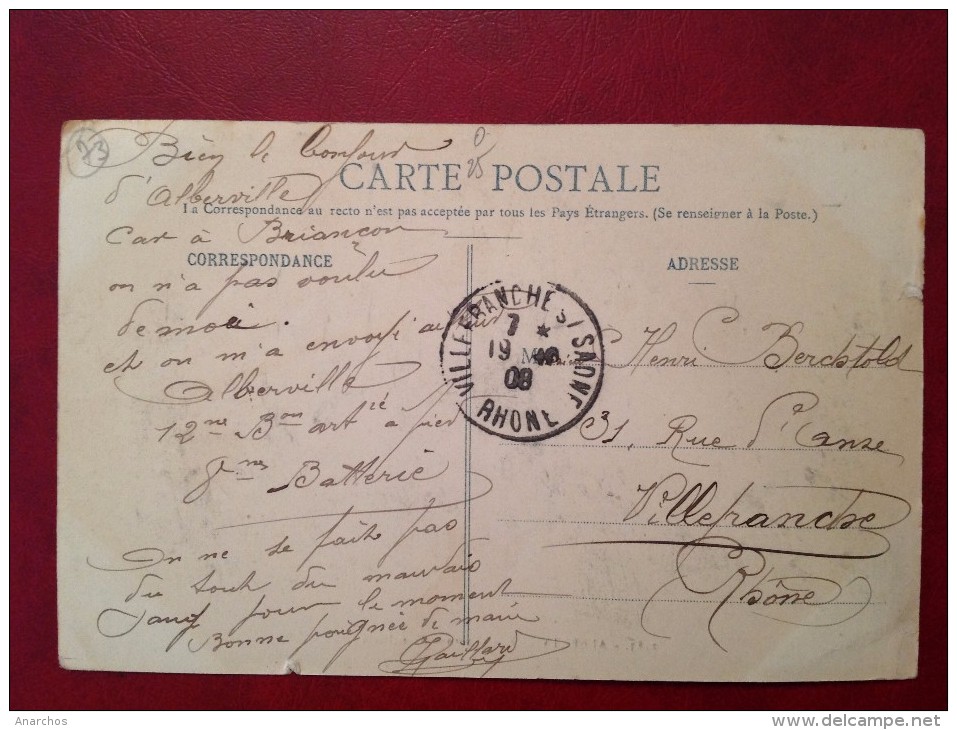 23
Bien le bonjour
d'Alberville
0
25
CARTE POSTALE
La Correspondance au recto n'est pas acceptée par tous les Pays Étrangers. (Se renseigner à la Poste.)
Car à Briançon
CORRESPONDANCE
on n'a pas voulu
de moi.
et on m'a envoyé
Alberville
12me Bon artie à pied
8mes Batterie
On ne se fait pas
du tout du mauvais
Sang pour le moment
Bonne poignée de main
Gaillard
VILLEFRANCHE S/ SAONE
7 *
19
08
RHONE
ADRESSE
M Henri Berchtold
31, Rue d'Anse
Villefranche
Rhône
Anarchos
www.delcampe.net